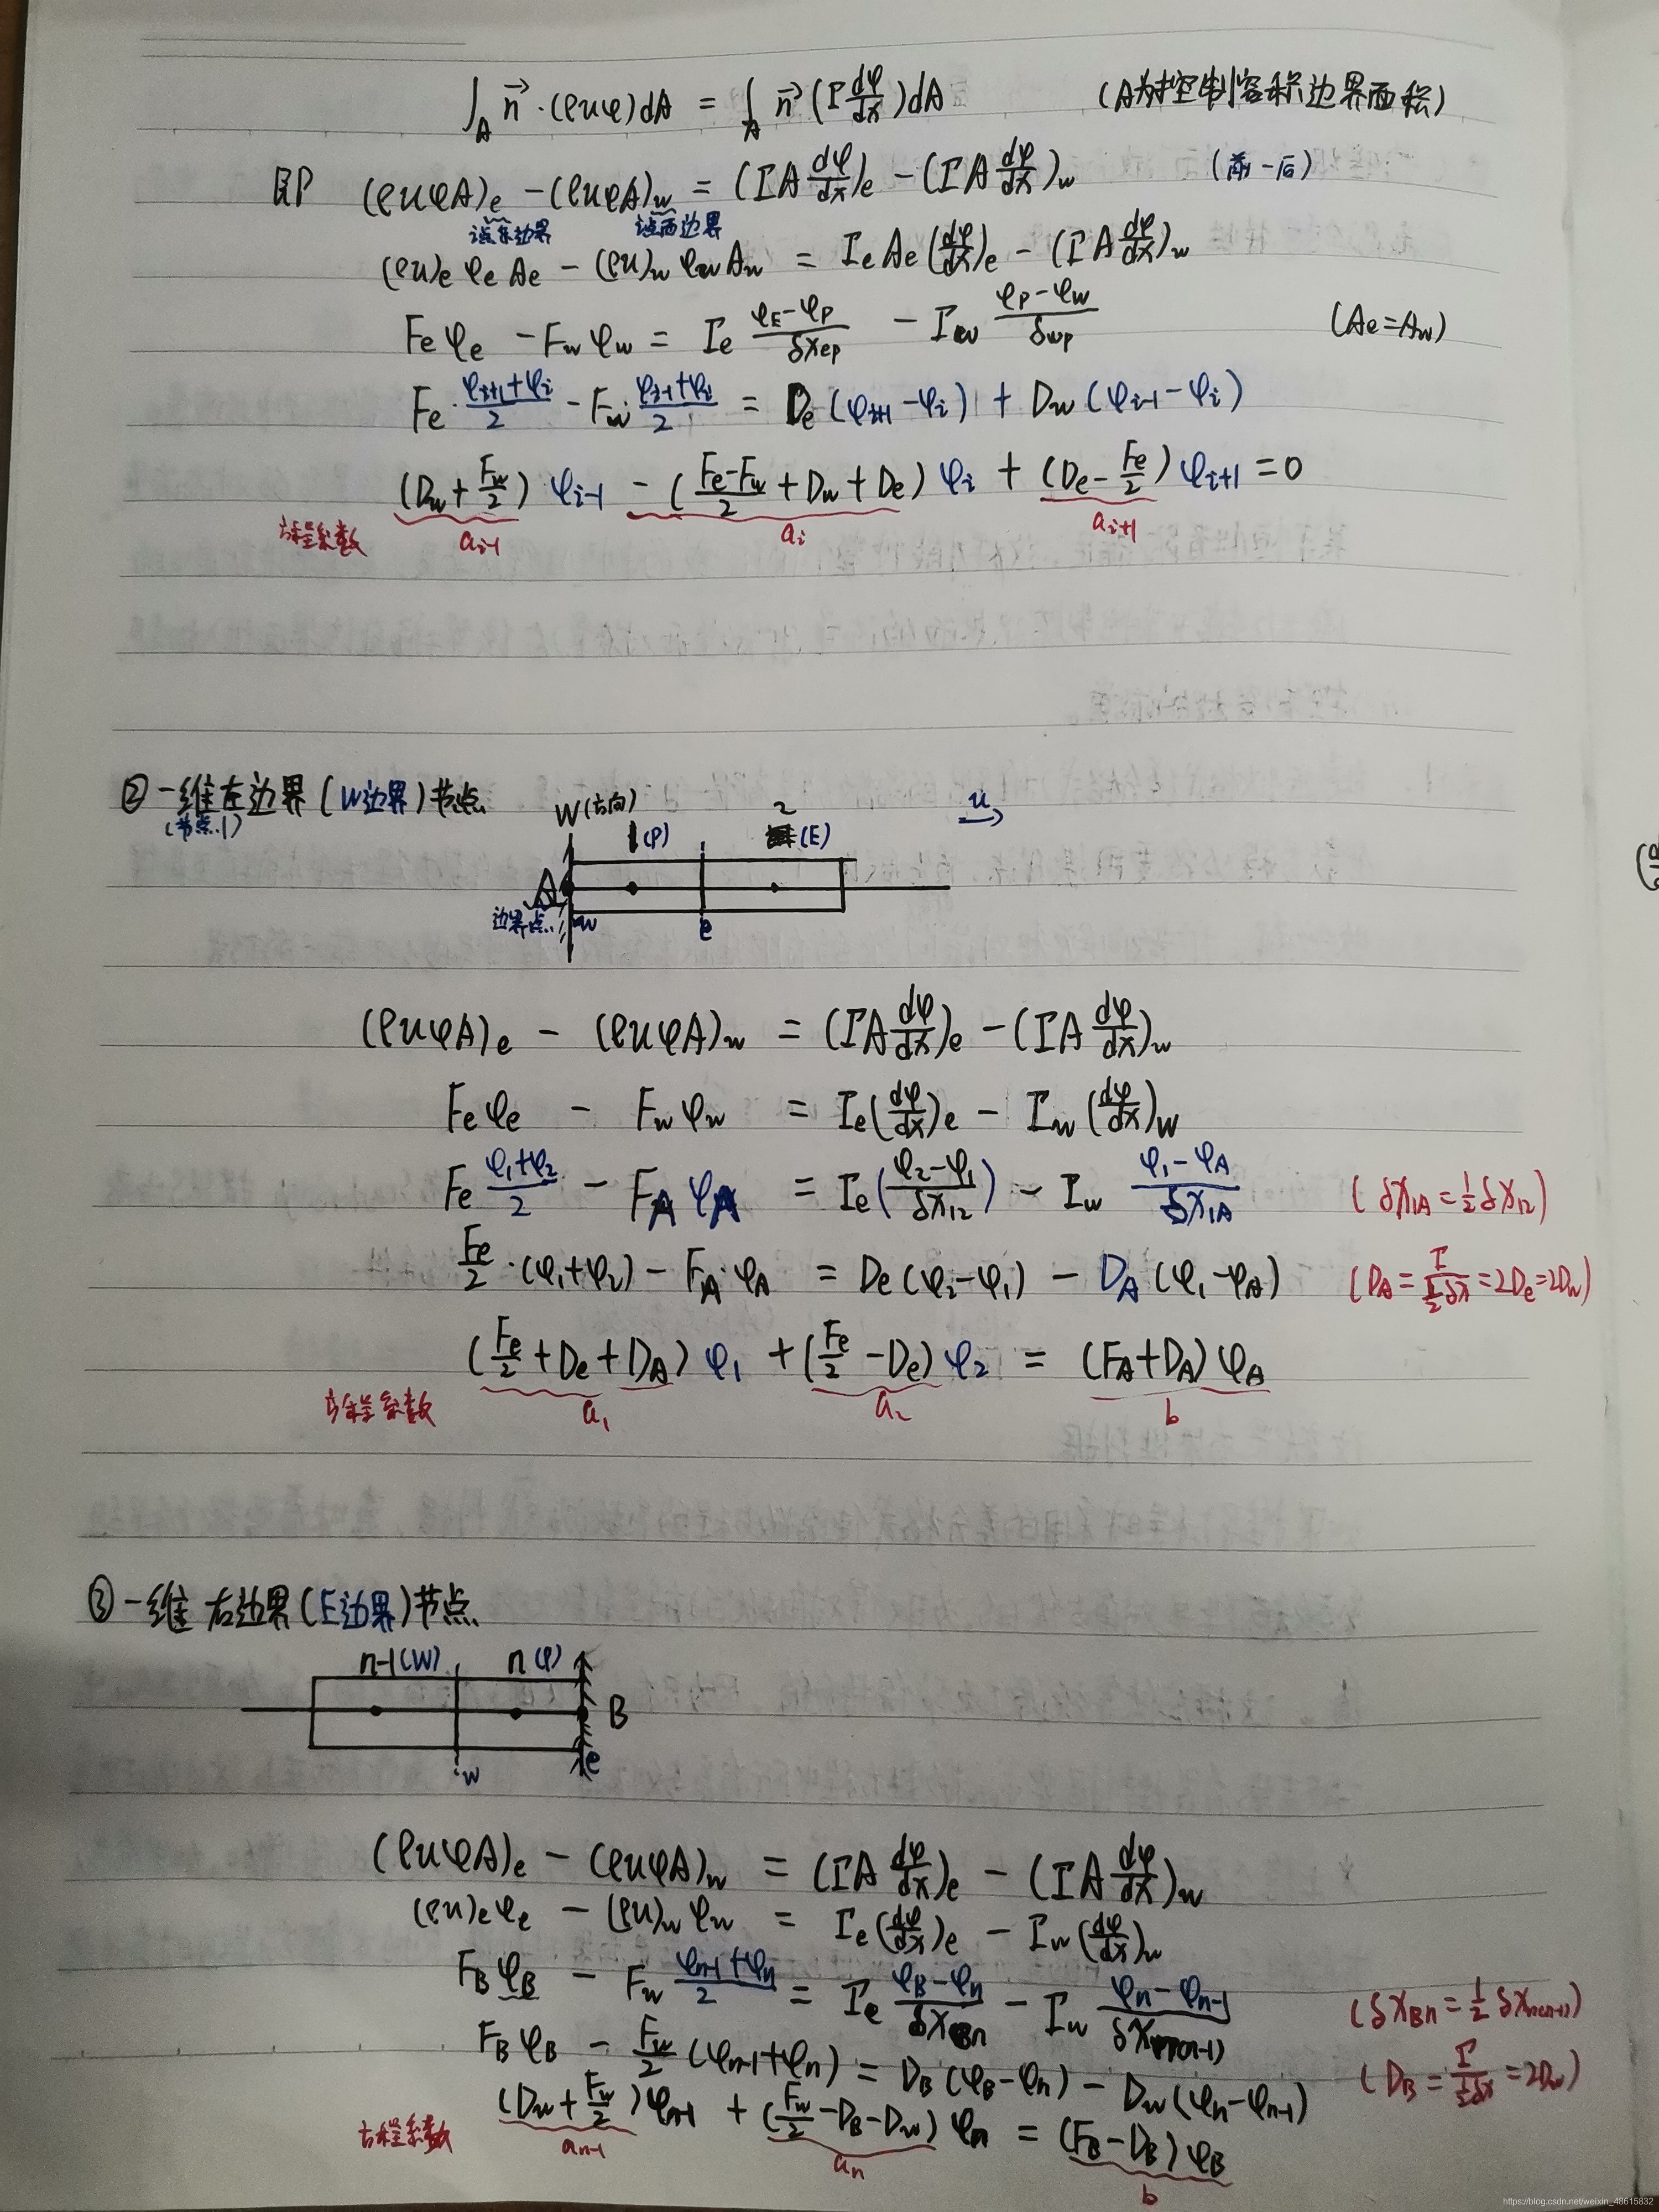 ∫_A n⃗·(ρuφ)dA = ∫_A n⃗(Γ dφ/dx)dA (A为控制容积边界面积)
即 (ρuφA)e − (ρuφA)w = (ΓA dφ/dx)e − (ΓA dφ/dx)w (前−后)
该东边界 该西边界
(ρu)e φe Ae − (ρu)w φw Aw = Γe Ae (dφ/dx)e − (ΓA dφ/dx)w
Fe φe − Fw φw = Γe (φE−φP)/δxep − Γw (φP−φW)/δwp (Ae=Aw)
Fe·(φi+1+φi)/2 − Fw·(φi-1+φi)/2 = De(φi+1−φi) + Dw(φi-1−φi)
(Dw+Fw/2)φi-1 − ((Fe−Fw)/2+Dw+De)φi + (De−Fe/2)φi+1 = 0
方程系数 ai-1 ai ai+1
② 一维左边界(W边界)节点
(节点1)
W(方向) 1(P) 2(E) u→
A
边界点 w e
(ρuφA)e − (ρuφA)w = (ΓA dφ/dx)e − (ΓA dφ/dx)w
Fe φe − Fw φw = Γe(dφ/dx)e − Γw(dφ/dx)w
Fe (φ1+φ2)/2 − FA φA = Γe((φ2−φ1)/δx12) − Γw (φ1−φA)/δx1A (δx1A=½δx12)
Fe/2·(φ1+φ2) − FA·φA = De(φ2−φ1) − DA(φ1−φA) (DA=Γ/(½δx)=2De=2Dw)
(Fe/2+De+DA)φ1 + (Fe/2−De)φ2 = (FA+DA)φA
方程系数 a1 a2 b
③ 一维右边界(E边界)节点
n-1(W) n(P)
B
w e
(ρuφA)e − (ρuφA)w = (ΓA dφ/dx)e − (ΓA dφ/dx)w
(ρu)e φe − (ρu)w φw = Γe(dφ/dx)e − Γw(dφ/dx)w
FB φB − Fw (φn-1+φn)/2 = Γe (φB−φn)/δxBn − Γw (φn−φn-1)/δxn(n-1) (δxBn=½δxn(n-1))
FB φB − Fw/2(φn-1+φn) = DB(φB−φn) − Dw(φn−φn-1) (DB=Γ/(½δx)=2Dw)
(Dw+Fw/2)φn-1 + (Fw/2−DB−Dw)φn = (FB−DB)φB
方程系数 an-1 an b
https://blog.csdn.net/weixin_48615832